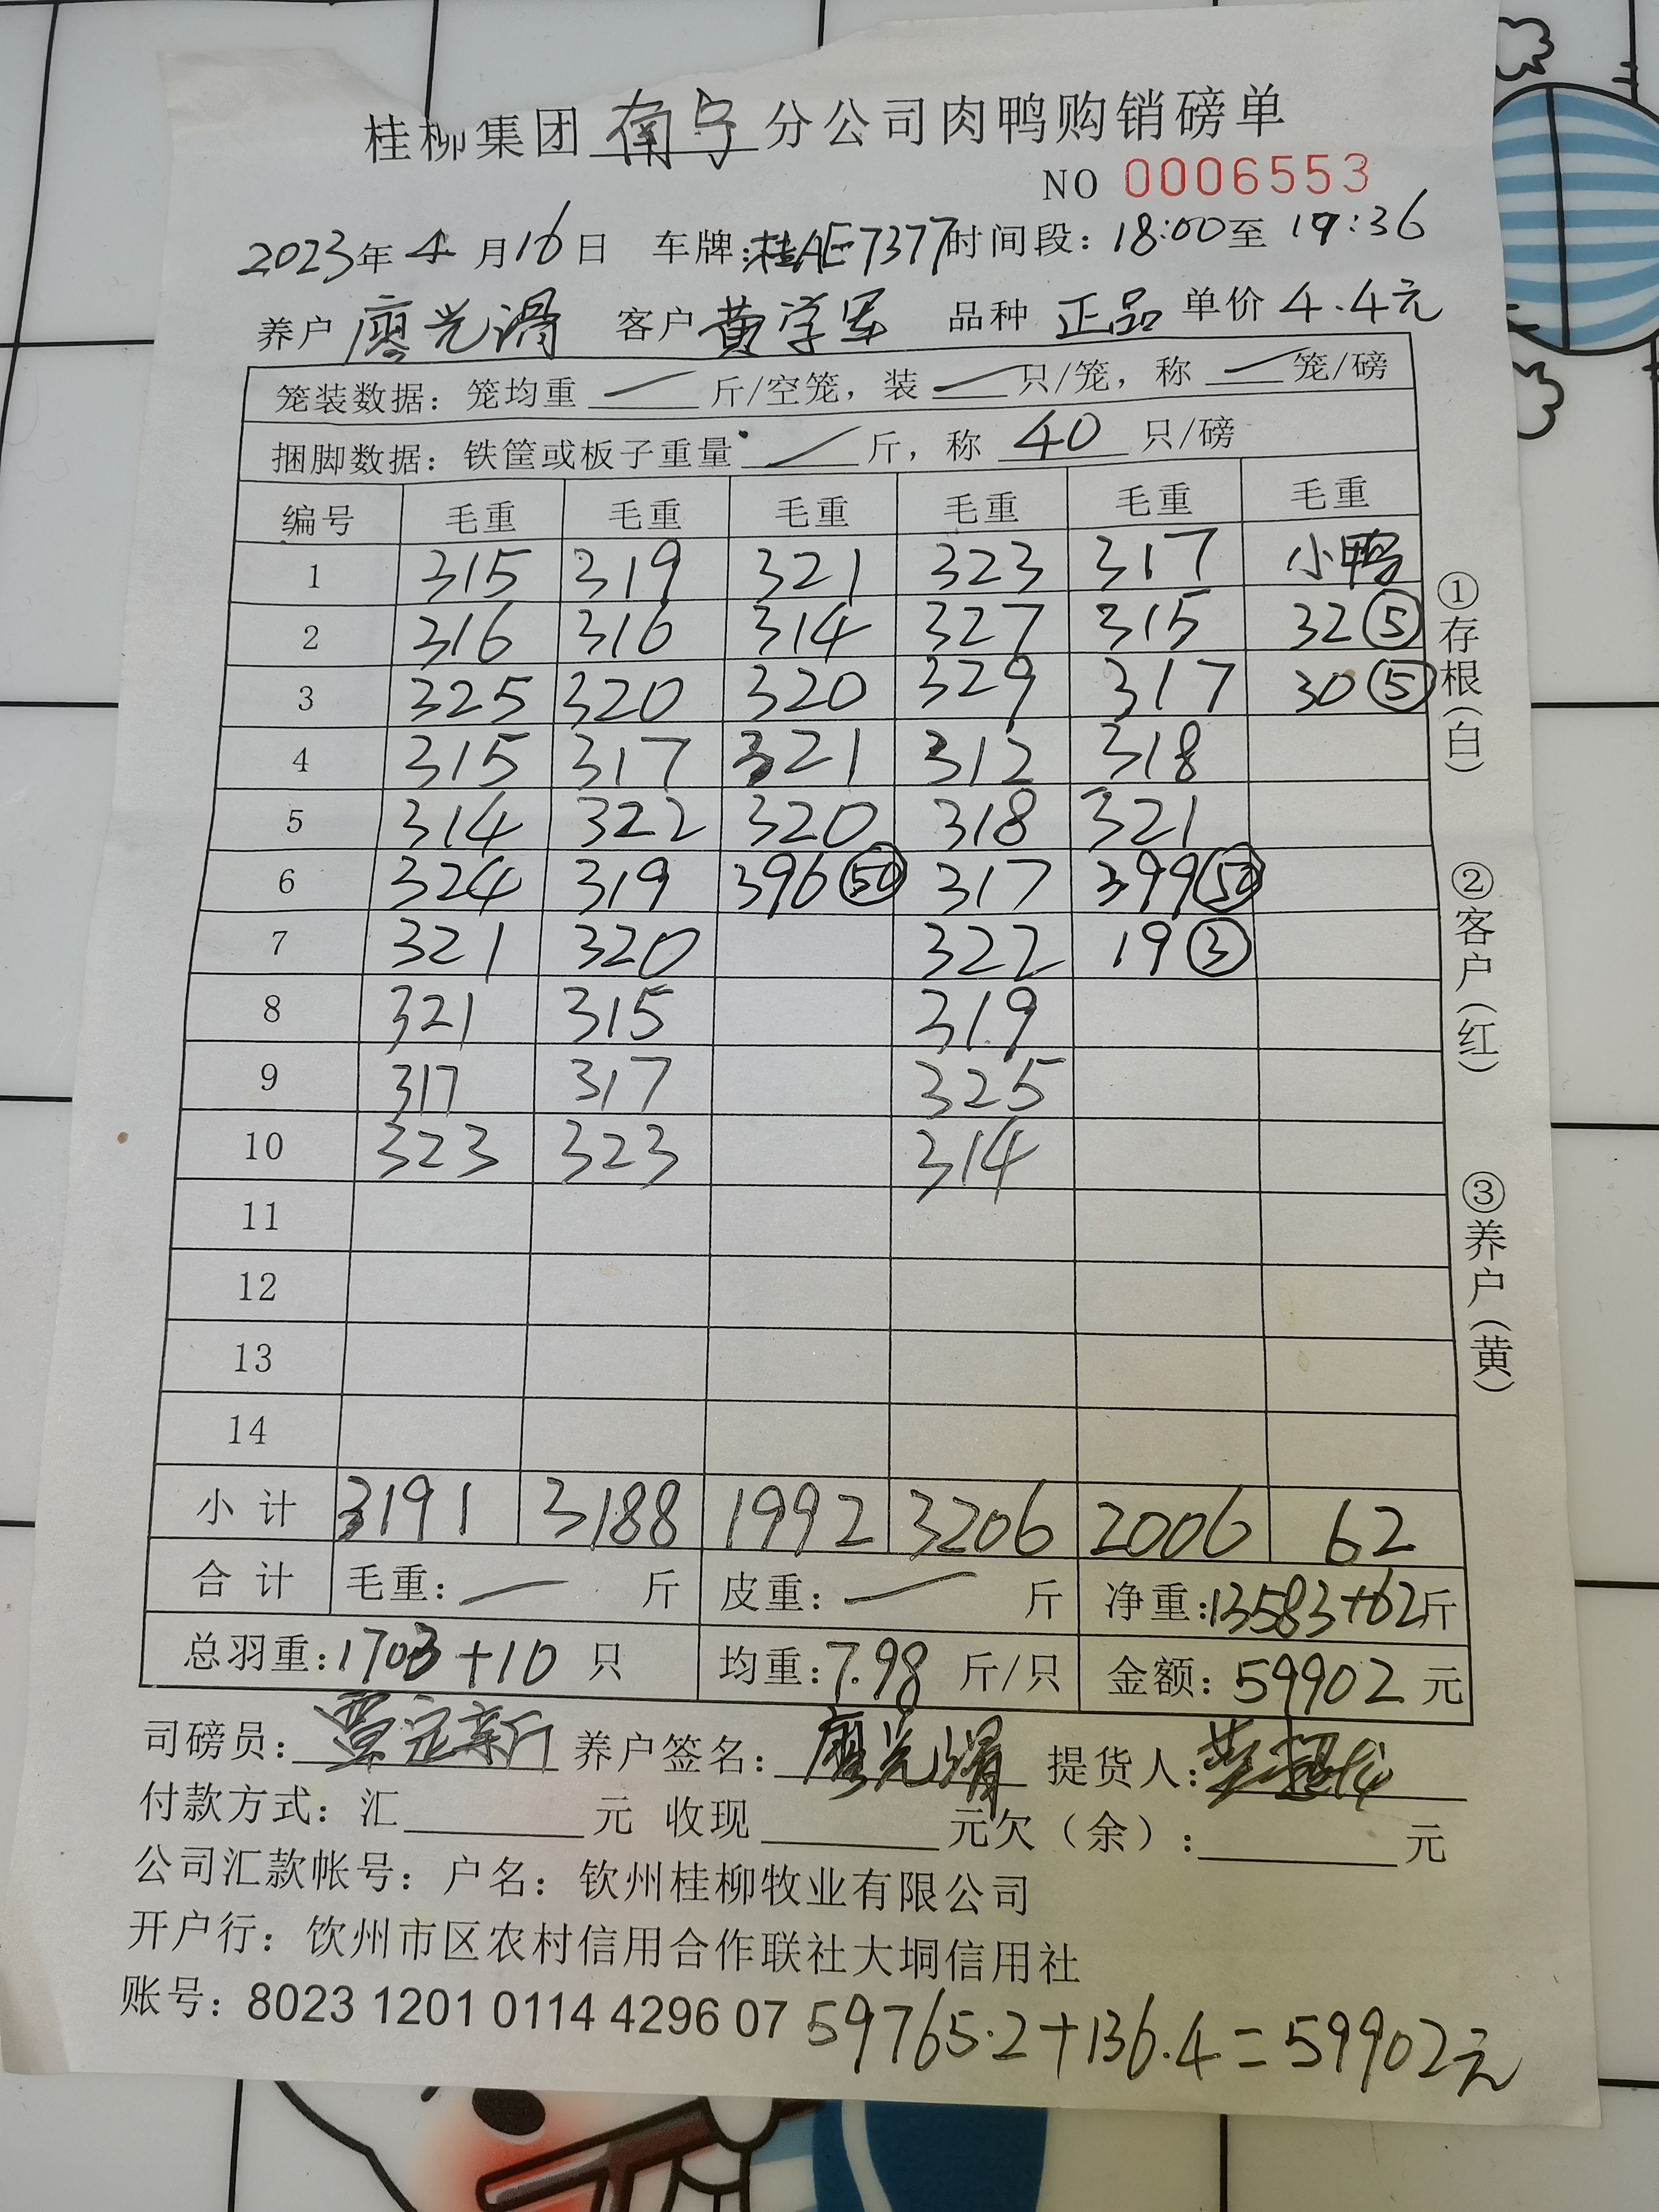 桂柳集团 南宁 分公司肉鸭购销磅单
NO 0006553
2023年 4 月16日 车牌:桂AE7377 时间段: 18:00至 19:36
养户 廖光滑 客户 黄学军 品种 正品 单价 4.4元
笼装数据: 笼均重 — 斤/空笼, 装 — 只/笼, 称 — 笼/磅
捆脚数据: 铁筐或板子重量 — 斤, 称 40 只/磅
编号 毛重 毛重 毛重 毛重 毛重 毛重
1 315 319 321 323 317 小鸭
2 316 316 314 327 315 32⑤
3 325 320 320 329 317 30⑤
4 315 317 321 312 318
5 314 322 320 318 321
6 324 319 396㊿ 317 399㊿
7 321 320 322 19③
8 321 315 319
9 317 317 325
10 323 323 314
11
12
13
14
小计 3191 3188 1992 3206 2006 62
合计 毛重: — 斤 皮重: — 斤 净重:13583+62斤
总羽重:1703+10 只 均重:7.98 斤/只 金额: 59902 元
司磅员: 养户签名: 廖光滑 提货人:
付款方式: 汇 元 收现 元欠(余): 元
公司汇款帐号: 户名: 钦州桂柳牧业有限公司
开户行: 钦州市区农村信用合作联社大垌信用社
账号: 8023 1201 0114 4296 07 59765.2+136.4=59902元
①存根(白)
②客户(红)
③养户(黄)